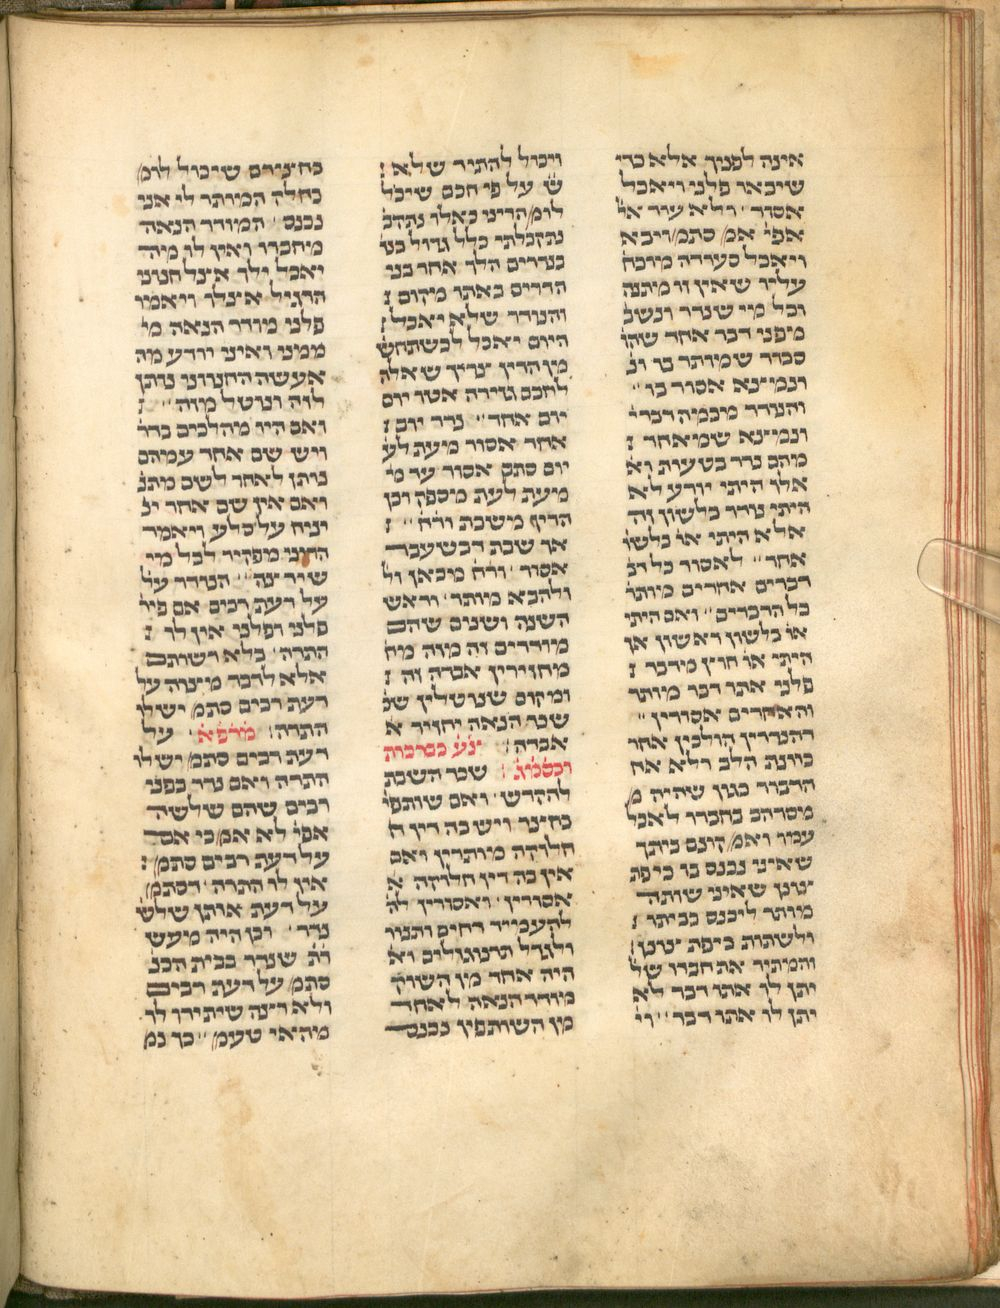 אינה לפניך אלא כדי
שיבאו פלני ויאכל
אסור ׳ ולא עוד אל
אפי׳ אמ׳ סתמ׳ ויבא
ויאכל סעודה מוכח
עליו שאין זו מיתנה
וכל מי שנדר ונשב
מפני דבר אחד שהו
סבור שמותר בו ונ
ונמ־צא אסור בו ׳׳
והנודר מכמה דברי׳
ונמ־צא שמיאחד
מהם נדר בטעות וא׳
אלו הייתי יודע לא
הייתי נודר בלשון זה
אלא הייתי או׳ בלשו
אחר ׳׳ לאסור כל וכ
דברים אחרים מותר
כל הדברים ׳׳ ואם הייתי
או׳ בלשון ראשון או
הייתי או׳ חוץ מדבר
פלני אתו דבר מותר
והאחרים אסורין ׳׳
דהנדרין הולכין אחר
כוונת הלב ולא אח
הדבור כגון שהיה מ
מסרהב בחברו לאכל
עמו ואמ׳ קונם ביתך
שאיני נכנס בו טיפת
צונן שאיני שותה
מותר ליכנס בביתו
ולשתות טיפת צונן
והמתיר את חברו של
יתן לו אתו דבר לא
יתן לו אתו דבר ׳׳ וי
ויכול להתיר שלא
ש׳ על פי חכם שיכל
לומ׳ הריני כאלו נתקב
נתקבלתי כלל גדול בנ
בנדרים הלך אחר בני
הדרים באתו מקום
והנודר שלא יאכל
היום יאכל לכשתחש
מן הדין צריך שאלה
לחכם גזירה אטו יום
יום אחד ׳׳ נדר יום
אחד אסור מעת לע
יום סתם אסור עד מ
מעת לעת מספק וכן
הדין משבת ור׳ח׳
או שבת דכשעבר
אסור ׳ ור׳ח מכאן ול
ולהבא מותר ׳ וראש
השנה ושנים שהם
מודרים זה מזה מח
מחזירין אבדה זה
ומקום שנוטלין שכ
שכר הנאה יחזיר א
אבדה ׳ ׳נ׳ע׳ כפרכות
וכסמ׳נ׳ ׳ שכר השבת
להקדש ׳ ואם שותפי
בחצר ויש בה דין ח
חלוקה מותרין ואם
אין בה דין חלוקה א
אסורין ׳ ואסורין לה
להעמיד רחים ותנור
ולגדל תרנגולים וא
היה אחד מן השוק
מודר הנאה לאחד
מן השותפין נכנס
בחצירים שיכול לומ׳
בחלק המותר לו אני
נכנס ׳ המודר הנאה
מחברו ואין לו מה
יאכל ילך אצל חנוני
הרגיל אצלו ויאמר
פלני מודר הנאה מ׳
ממני ואיני יודע מה
אעשה החנוני נותן
לזה ונוטל מזה ׳׳
ואם היו מהלכים בדר
ויש שם אחד עמהם
נותן לאחר לשם מתנ
ואם אין שם אחר ינ
יניח על סלע ויאמר
הריני מפקיר לכל מי
שירצה ׳׳ הנודר על
על דעת רבים אם פיר
פלני ופלני אין לו
התרה ׳ בלא רשותם
אלא לדבר מצוה על
דעת רבים סתמ׳ יש לו
התרה ׳ מרפא ׳ על
דעת רבים סתמ׳ יש לו
התרה ואם נדר בפני
רבים שהם שלשה
אפי׳ לא אמ׳ כי אם
על דעת רבים סתמ׳
אין לו התרה ׳ דסתמ׳
על דעת אותן שלש
נדר ׳ וכן היה מעש
ר׳ת׳ שנדר בבית הכנ
סתמ׳ על דעת רבים
ולא רצה שיתירו לו
מהאי טעמ׳ ׳׳ כך נמ